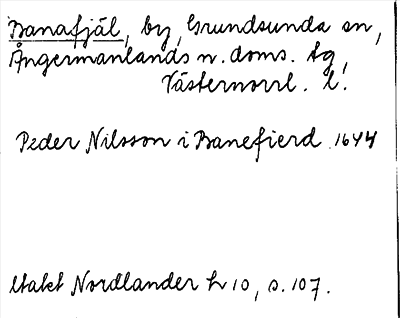 Banafjäl, by, Grundsunda sn,
Ångermanlands n. doms. tg,
Västernorrl. l.
Peder Nilsson i Banefierd 1644
Nordlander h 10, s. 107.